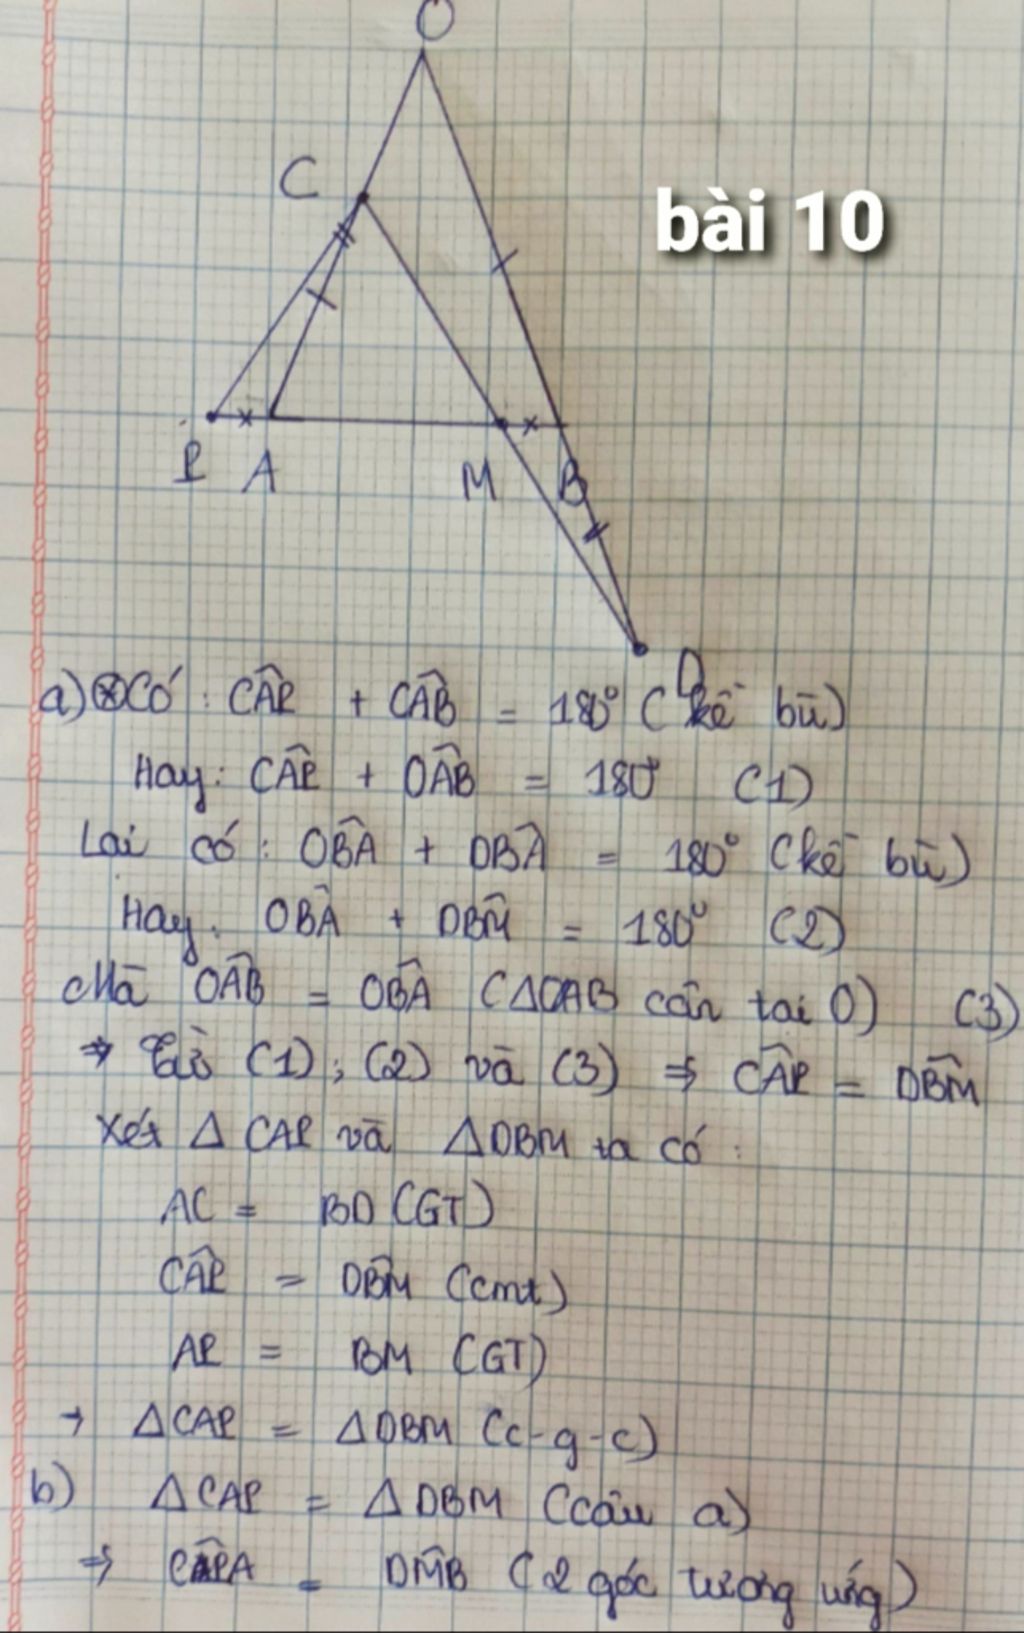 O
C
bài 10
P A M B
D
a) Có : CÂP + CÂB = 180° (kề bù)
Hay: CÂP + OÂB = 180° (1)
Lại có : OB̂A + DB̂A = 180° (kề bù)
Hay: OB̂A + DB̂M = 180° (2)
Mà OÂB = OB̂A (ΔOAB cân tại O) (3)
⇒ Từ (1) ; (2) và (3) ⇒ CÂP = DB̂M
Xét Δ CAP và ΔDBM ta có :
AC = BD (GT)
CÂP = DB̂M (cmt)
AP = BM (GT)
→ ΔCAP = ΔDBM (c-g-c)
b) ΔCAP = ΔDBM (câu a)
⇒ CP̂A = DM̂B (2 góc tương ứng)